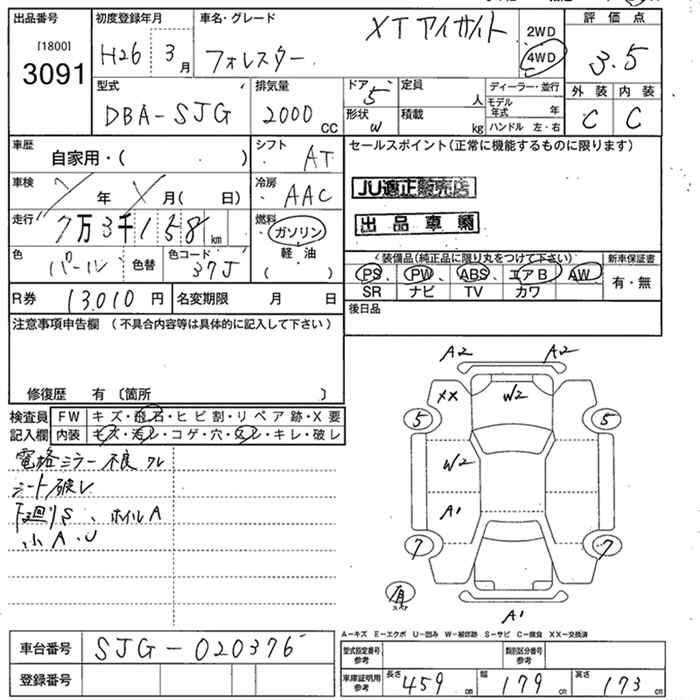 出品番号 [1800] 3091
初度登録年月 H26 3月
車名・グレード フォレスター XT アイサイト
2WD 4WD
評価点 3.5
外装 C 内装 C
型式 DBA-SJG
排気量 2000 cc
ドア 5 形状 W
定員 人
積載 kg
ディーラー・並行
モデル年式 年
ハンドル 左・右
車歴 自家用・( )
シフト AT
車検 年 月(日)
冷房 AAC
走行 7万3千158km
燃料 ガソリン 軽油 ( )
色 パール 色替 色コード 37J
R券 13,010円
名変期限 月 日
セールスポイント(正常に機能するものに限ります)
JU適正販売店
出品車輌
装備品(純正品に限り丸をつけて下さい)
PS、PW、ABS、エアB、AW
SR ナビ TV カワ
新車保証書 有・無
後日品
注意事項申告欄(不具合内容等は具体的に記入して下さい)
修復歴 有〔箇所 〕
検査員記入欄
FW キズ・飛石・ヒビ割・リペア跡・X要
内装 キズ・汚レ・コゲ・穴・スレ・キレ・破レ
電格ミラー不良
シート破レ
下廻りS、ホイルA
小A・U
A2 A2
XX W2
5 5
W2
A1
7 7
有
A1
A-キズ E-エクボ U-凹み W-補修跡 S-サビ C-腐食 XX-交換済
車台番号 SJG-020376
登録番号
型式指定番号 参考
類別区分番号 参考
車庫証明用 参考
長さ 459cm 幅 179cm 高さ 173cm